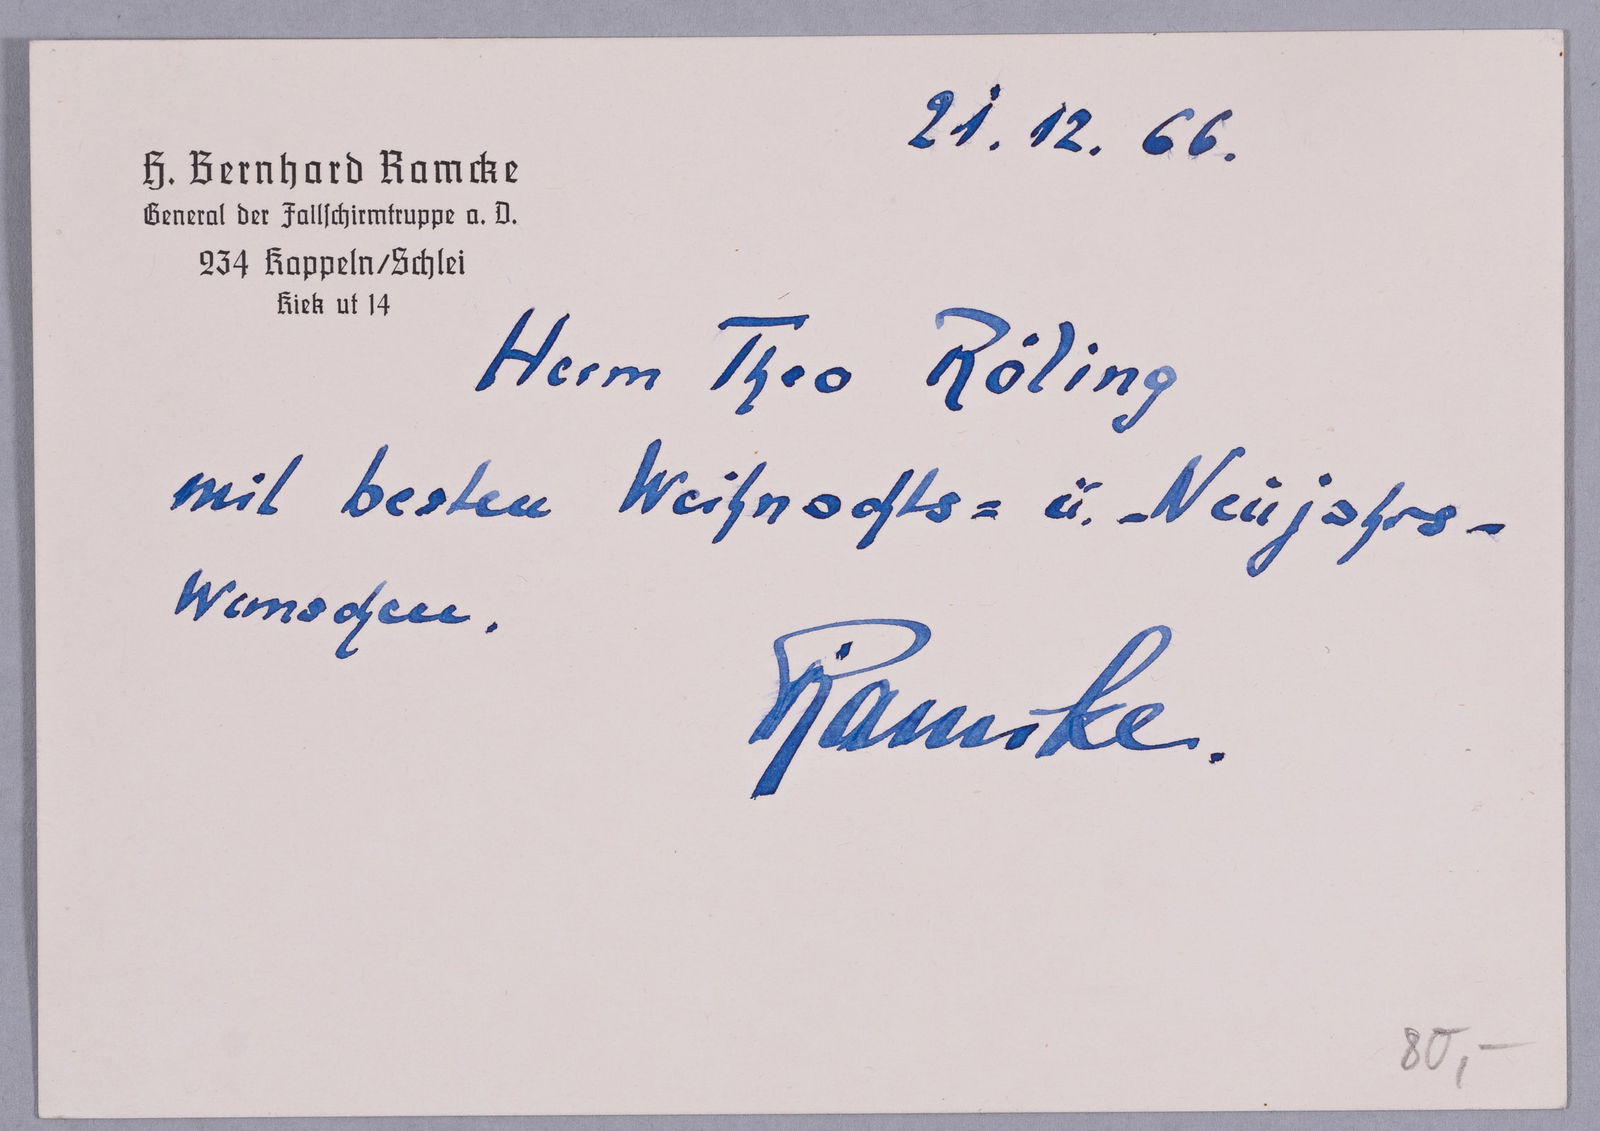 21. 12. 66.
H. Bernhard Ramcke
General der Fallschirmtruppe a. D.
234 Kappeln/Schlei
Kiek ut 14
Herrn Theo Röling
mit besten Weihnachts= u. -Neujahrs-
Wünschen.
Ramcke.
80,-